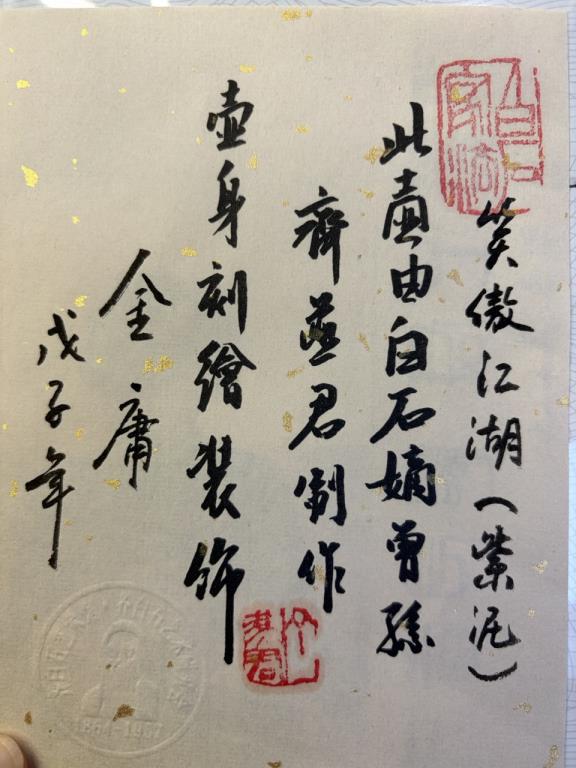 笑傲江湖(紫泥)
此壷由白石嫡曾孫
齊君制作
壷身刻繪裝飾
金庸
戊子年
1864-1957